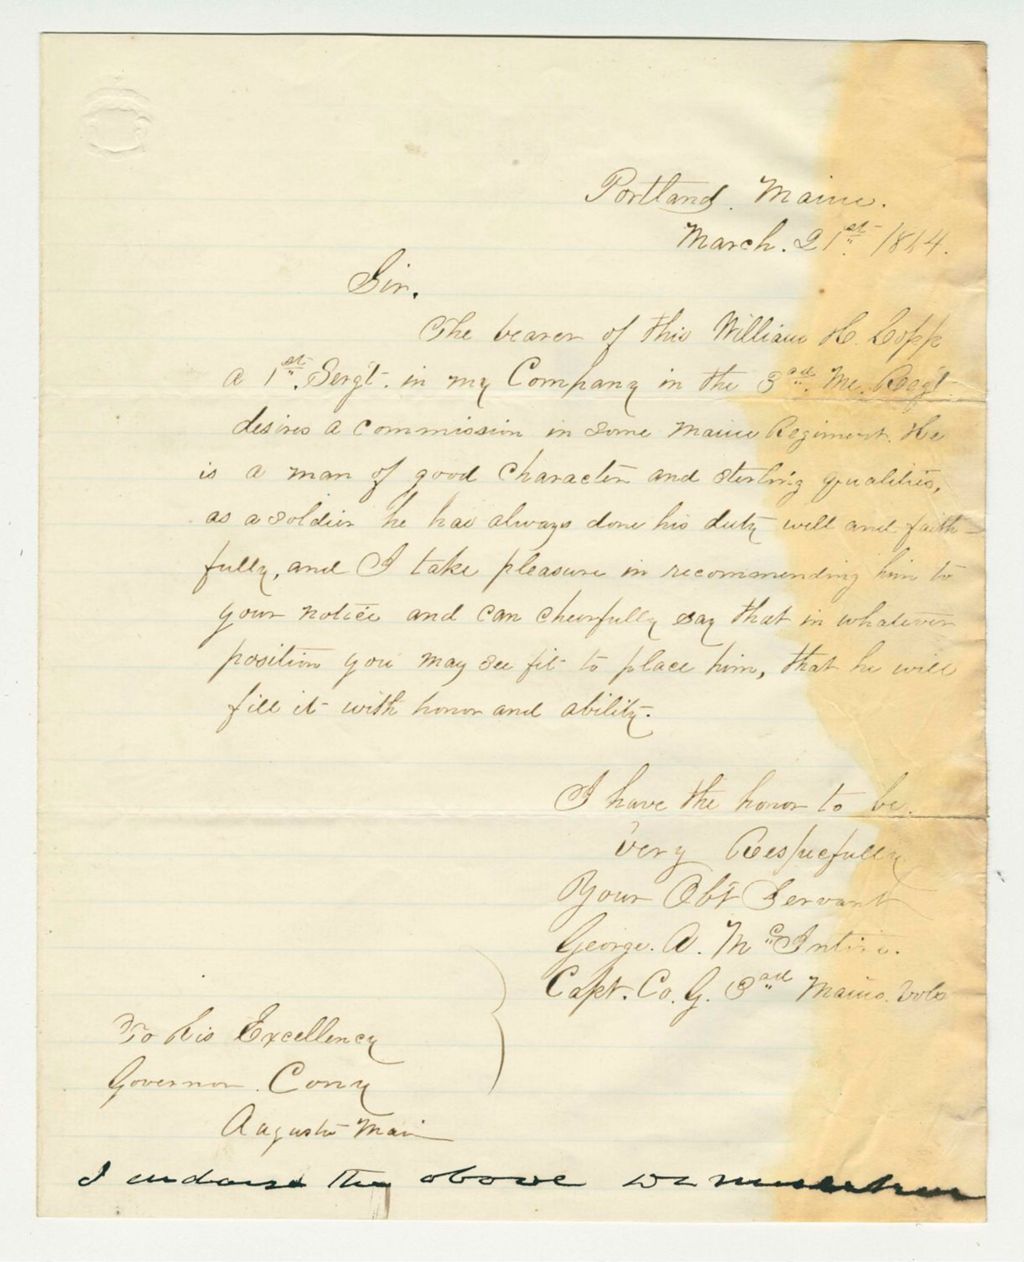 Portland. Maine.
March. 21st. 1864.
Sir.
The bearer of this William H. Copp
a 1st. Sergt. in my Company in the 3rd. Me. Regt
desires a commission in some Maine Regiment. He
is a man of good character and sterling qualities,
as a soldier he has always done his duty well and faith-
fully, and I take pleasure in recommending him to
your notice and can cheerfully say that in whatever
position you may see fit to place him, that he will
fill it with honor and ability.
I have the honor to be.
Very Respecfully
Your Obt Servant
George. A. McIntire.
Capt. Co. G. 3rd Maine. Vols
To His Excellency
Governor Cony
Augusta Main
I endorse the above